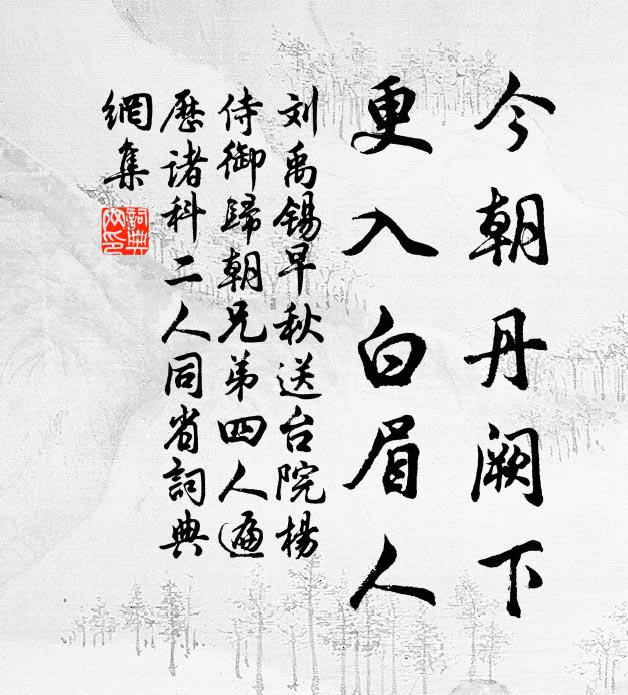 今朝丹阙下
更入白眉人
刘禹锡早秋送台院杨
侍御归朝兄弟四人遍
历诸科二人同省詞典
網集
詞典
网印